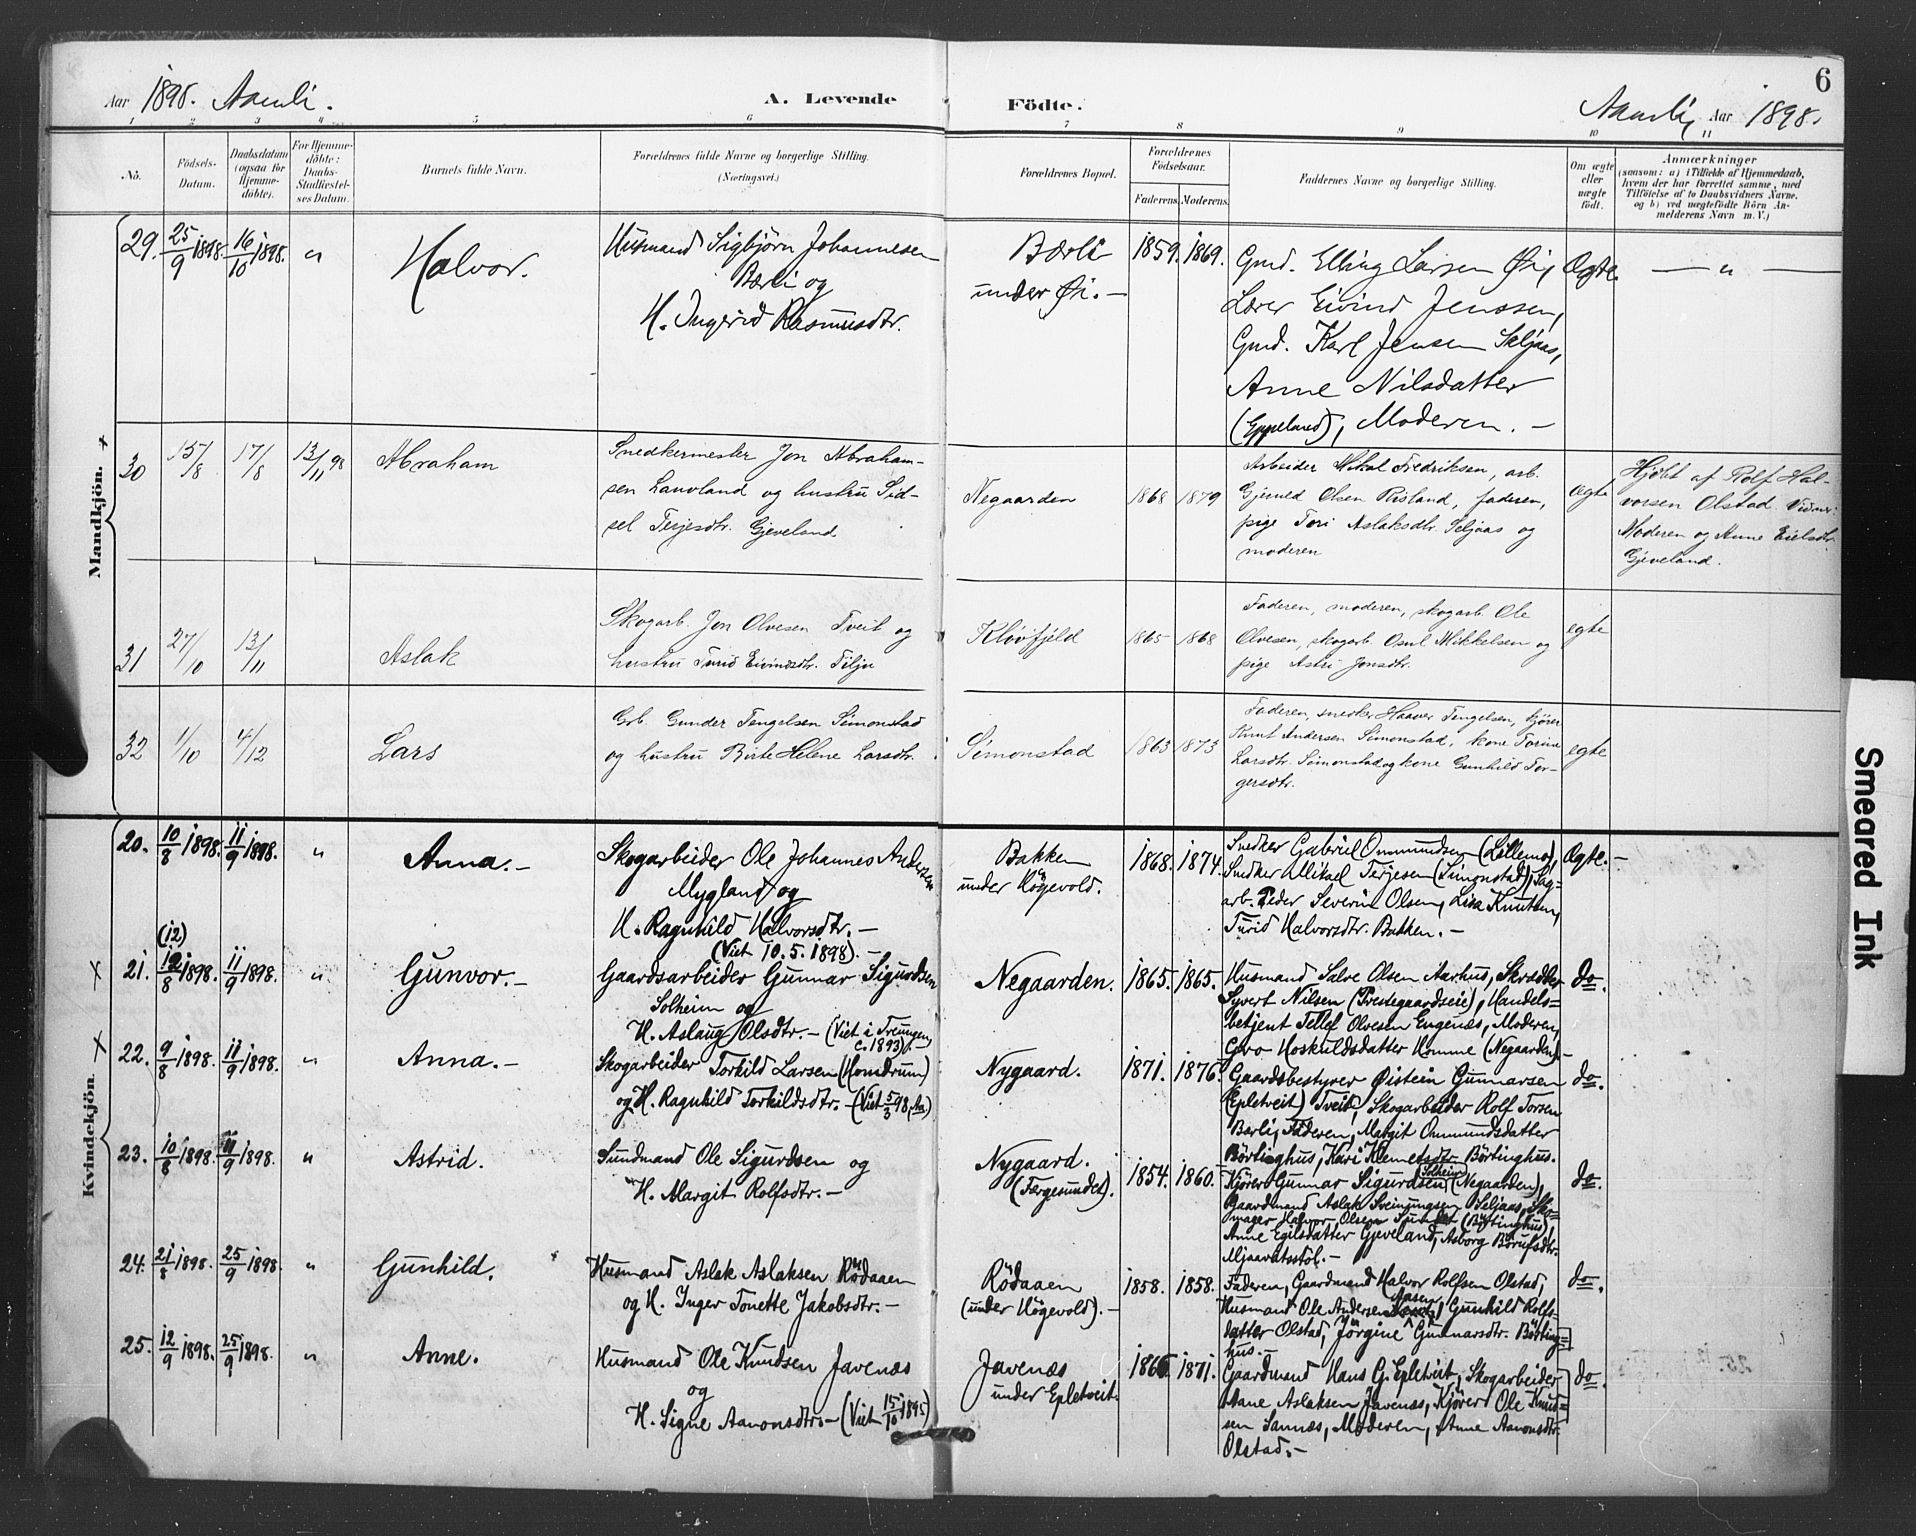 Aar 1898. Aamli.
A. Levende
Födte.
Aamli, Aar 1898.
6
1 2 3 4 5 6 7 8 9 10 11
No.
Födsels-
Datum.
Daabsdatum
(ogsaa for
Hjemme-
döbte).
For Hjemme-
döbte:
Daabs-
Stadfæstel-
ses Datum.
Barnets fulde Navn.
Forældrenes fulde Navne og borgerlige Stilling.
(Næringsvei.)
Forældrenes Bopæl.
Forældrenes
Födselsaar.
Faderens. Moderens.
Faddernes Navne og borgerlige Stilling.
Om ægte
eller
uægte
födt.
Anmærkninger
(saasom: a) i Tilfælde af Hjemmedaab,
hvem der har forrettet samme, med
Tilföielse af to Daabsvidners Navne,
og b) ved uægtefödte Börn An-
melderens Navn m. V.)
Mandkjön.
29. 25/9 1898. 16/10 1898. "
Halvor.
Husmand Sigbjörn Johannesen
Bærli og
H. Ingerid Rasmusdtr.
Bærli
under Øi. —
1859. 1869.
Gmd. Elling Larsen Øi,
Lærer Eivind Jenssen,
Gmd. Karl Jensen Seljaas,
Anne Nilsdatter
(Eppeland), Moderen. —
Ægte.
— " —
30 15/8 17/8 13/11 98
Abraham
Snedkermester Jon Abraham-
sen Lauvland og hustru Sid-
sel Terjesdtr. Gjeveland
Negaarden
1868 1879
Arbeider Nikal Fredriksen, arb.
Gjerued Olsen Risland, faderen,
pige Tori Aslaksdtr. Seljaas og
moderen
ægte
Hjdbt af Rolf Hal-
vorsen Olstad. Vidner:
Moderen og Anne Eielsdtr.
Gjeveland.
31 27/10 13/11
Aslak
Skogarb. Jon Olvesen Tveit og
hustru Turid Eivindsdtr. Tilju
Kløvfjeld
1865 1868
Faderen, moderen, skogarb. Ole
Olvesen, skogarb Osul Mikkelsen og
pige Astri Jonsdtr.
egte
32 1/10 4/12
Lars
Grb. Gunder Tengelsen Simonstad
og hustru Birte Helene Larsdtr.
Simonstad
1863 1873
Faderen, snedker Haaver Tengelsen, kjører
Knut Andersen Simonstad, kone Torine
Larsdtr. Simonstad og kone Gunhild Tor-
gersdtr.
egte
Kvindekjön.
20. 10/8 1898. 11/9 1898. "
Anna. —
Skogarbeider Ole Johannes Andersen
Mygland og
H. Ragnhild Halvorsdtr. —
(Viet 10.5.1898). —
Bakken
under Högevold.
1868. 1874.
Snedker Gabriel Ommundsen (Lillemo),
Snedker Mikael Terjesen (Simonstad), Sag-
arb. Peder Severin Olsen, Lisa Knutsen,
Turid Halvorsdtr. Bakken. —
Ægte. —
(12)
21. 12/8 1898. 11/9 1898. "
Gunvor. —
Gaardsarbeider Gunnar Sigurdsen
Solheim og
H. Aslaug Olsdtr. — (Viet i Treungen
c. 1893). —
Negaarden.
1865. 1865.
Husmand Salve Olsen Aarhus, Skrædder
Syvert Nilsen (Prestegaardseie), Handels-
betjent Tellef Olvesen Engenes, Moderen,
Gro Hoskuldsdatter Homme (Negaarden). —
do.
22. 9/8 1898. 11/9 1898. "
Anna. —
Skogarbeider Torkild Larsen (Homdrum)
og H. Ragnhild Torkildsdtr. — (Viet 5/3 98, Aa)
Nygaard.
1871. 1876.
Gaardsbestyrer Øistein Gunnarsen
(Epletveit) Tveit, Skogarbeider Rolf Torsen
Bærli, Faderen, Margit Ommundsdatter
Börtinghus, Kari Klemetsdtr. Börtinghus.
do.
23. 10/8 1898. 11/9 1898. "
Astrid.
Sundmand Ole Sigurdsen og
H. Margit Rolfsdtr. —
Nygaard.
(Færgesundet).
1854. 1860.
Kjörer Gunnar Sigurdsen Solheim (Negaarden),
Gaardmand Aslak Sveinungsen Seljaas, Sko-
mager Halvor Olsen (Börtinghus),
Anne Egilsdatter Gjeveland, Asborg Börufsdtr.
Mjaavatsstöl. —
do.
24. 21/8 1898. 25/9 1898. "
Gunhild.
Husmand Aslak Aslaksen Rödaaen
og H. Inger Tonette Jakobsdtr. —
Rödaaen
(under Högevold). —
1858. 1858.
Faderen, Gaardmand Halvor Rolfsen Olstad,
Husmand Ole Andersen Aasen, Gunhild Rolfs-
datter Olstad, Jörgine Gunnarsdtr. Börting-
hus. —
do.
25. 12/9 1898. 25/9 1898. "
Anne.
Husmand Ole Knudsen Javenæs
og
H. Signe Aanonsdtr. — (Viet 15/10 1895)
Javenæs
under Epletveit.
1866. 1871.
Gaardmand Hans G. Epletveit, Skogarbeider
Aane Aslaksen Javenæs, Kjörer Ole Knud-
sen Sannæs, Moderen, Anne Aanonsdtr.
Olstad. —
do.
Smeared Ink